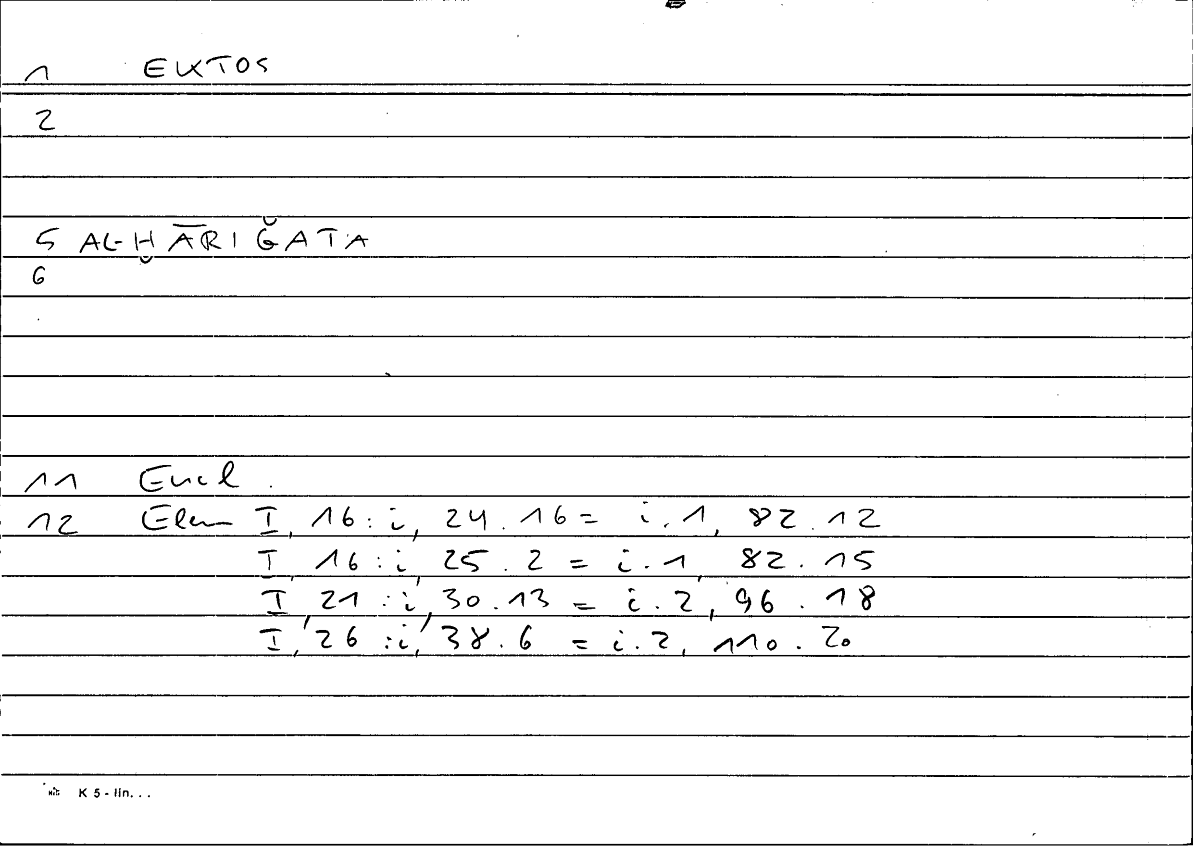 1 EKTOS
2
5 AL-ḪĀRIǦATA
6
11 Eucl.
12 Elem I, 16 : i, 24.16 = i.1, 82.12
I, 16 : i, 25.2 = i.1, 82.15
I, 21 : i, 30.13 = i.2, 96.18
I, 26 : i, 38.6 = i.2, 110.20
K 5 - lin...